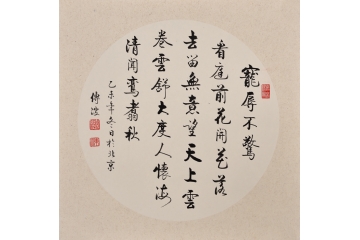 寵辱不驚
看庭前花開花落
去留無意望天上雲
卷雲舒大度人懷海
清閒鸞翥秋
乙未年冬日於北京